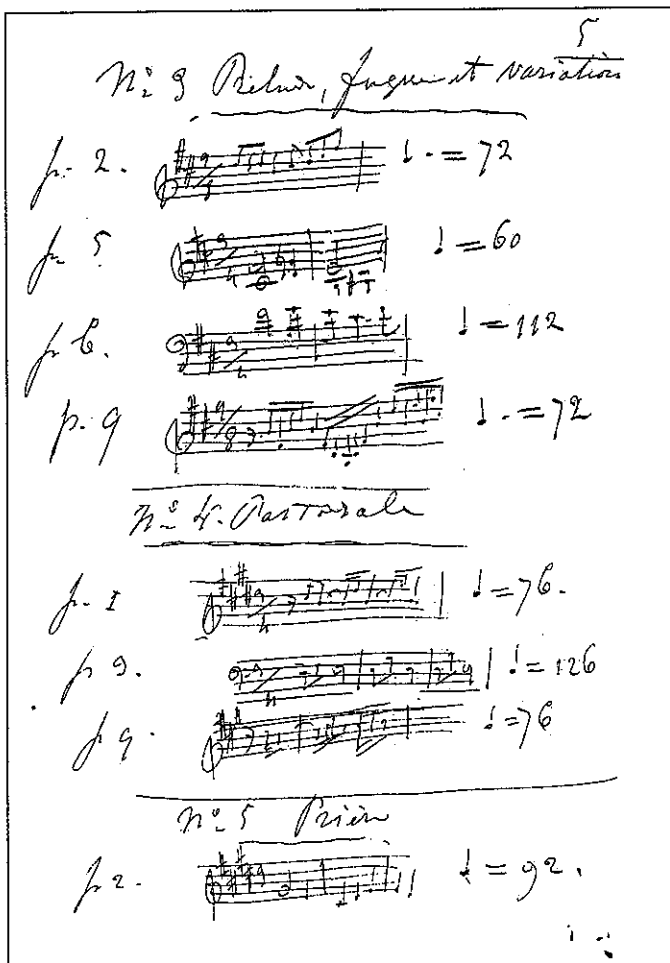 5
No 3 Prélude, fugue et variation
p. 2. ♩. = 72
p. 5 ♩ = 60
p. 6. ♩ = 112
p. 9 ♩. = 72
No 4. Pastorale
p. 1 ♩ = 76.
p 3. ♩ = 126
p 9. ♩ = 76
No 5 Prière
p 2. ♩ = 92.